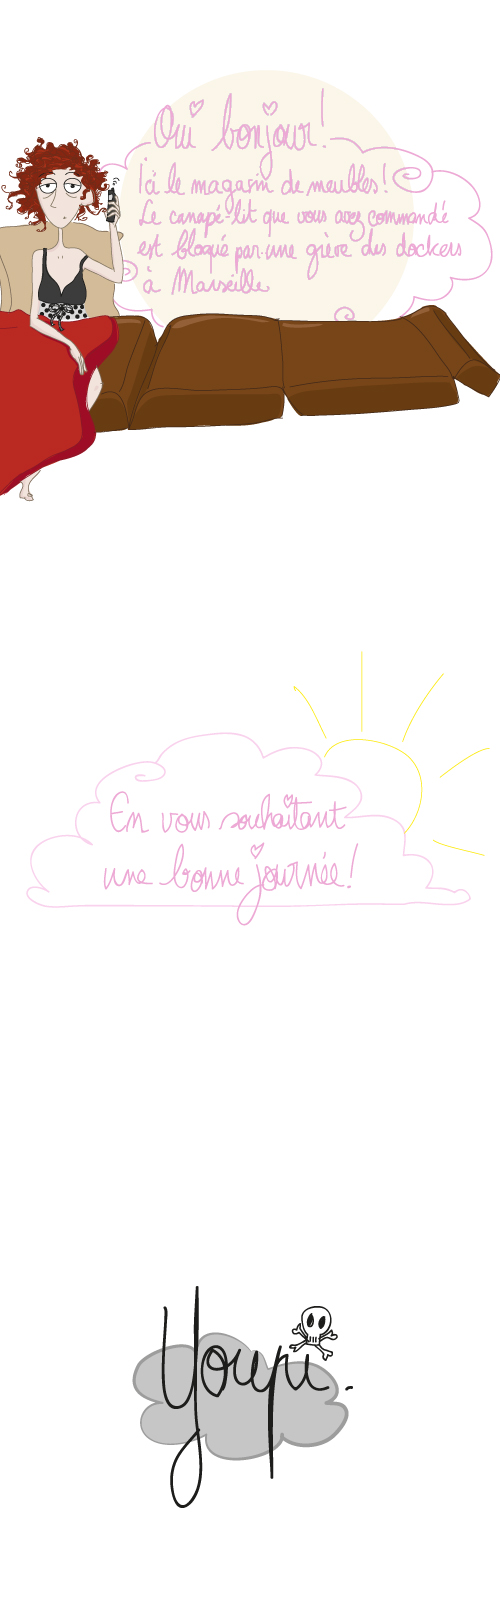 Oui bonjour!
Ici le magasin de meubles!
Le canapé-lit que vous avez commandé
est bloqué par une grève des dockers
à Marseille
En vous souhaitant
une bonne journée!
Youpi.